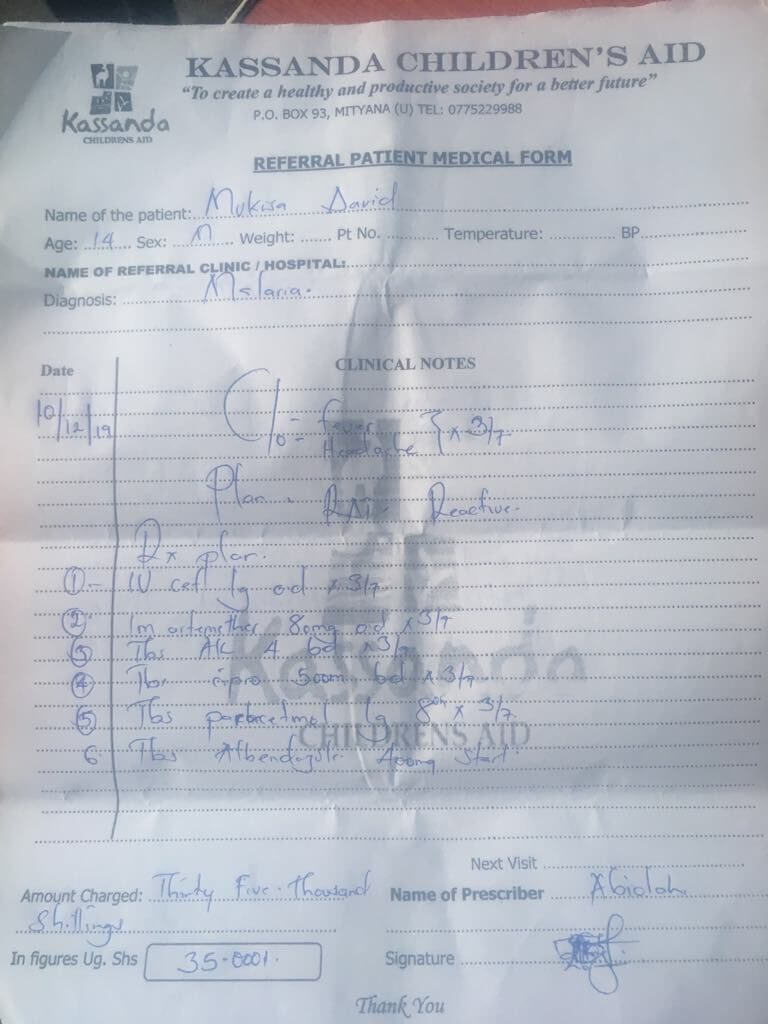 Kassanda
CHILDRENS AID
KASSANDA CHILDREN'S AID
"To create a healthy and productive society for a better future"
P.O. BOX 93, MITYANA (U) TEL: 0775229988
REFERRAL PATIENT MEDICAL FORM
Name of the patient: Mukisa David
Age: 14 Sex: M Weight: ....... Pt No. ............ Temperature: ............... BP...................
NAME OF REFERRAL CLINIC / HOSPITAL:
Diagnosis: Malaria.
Date CLINICAL NOTES
10/12/19 C/o = Fever
= Headache } x 3/7
Plan. RDT- Reactive.
Rx plan.
① - IV cef 1g od x 3/7
② Im artemether 80mg od x 3/7
③ Tbs 4 bd x 3/7
④ Tbs cipro 500m bd x 3/7
⑤ Tbs paracetmol 1g 8hr x 3/7
6. Tbs Albendazole 400mg start.
Kassanda
CHILDRENS AID
Next Visit
Amount Charged: Thirty Five Thousand
Shillings
Name of Prescriber
In figures Ug. Shs 35.000/.
Signature
Thank You